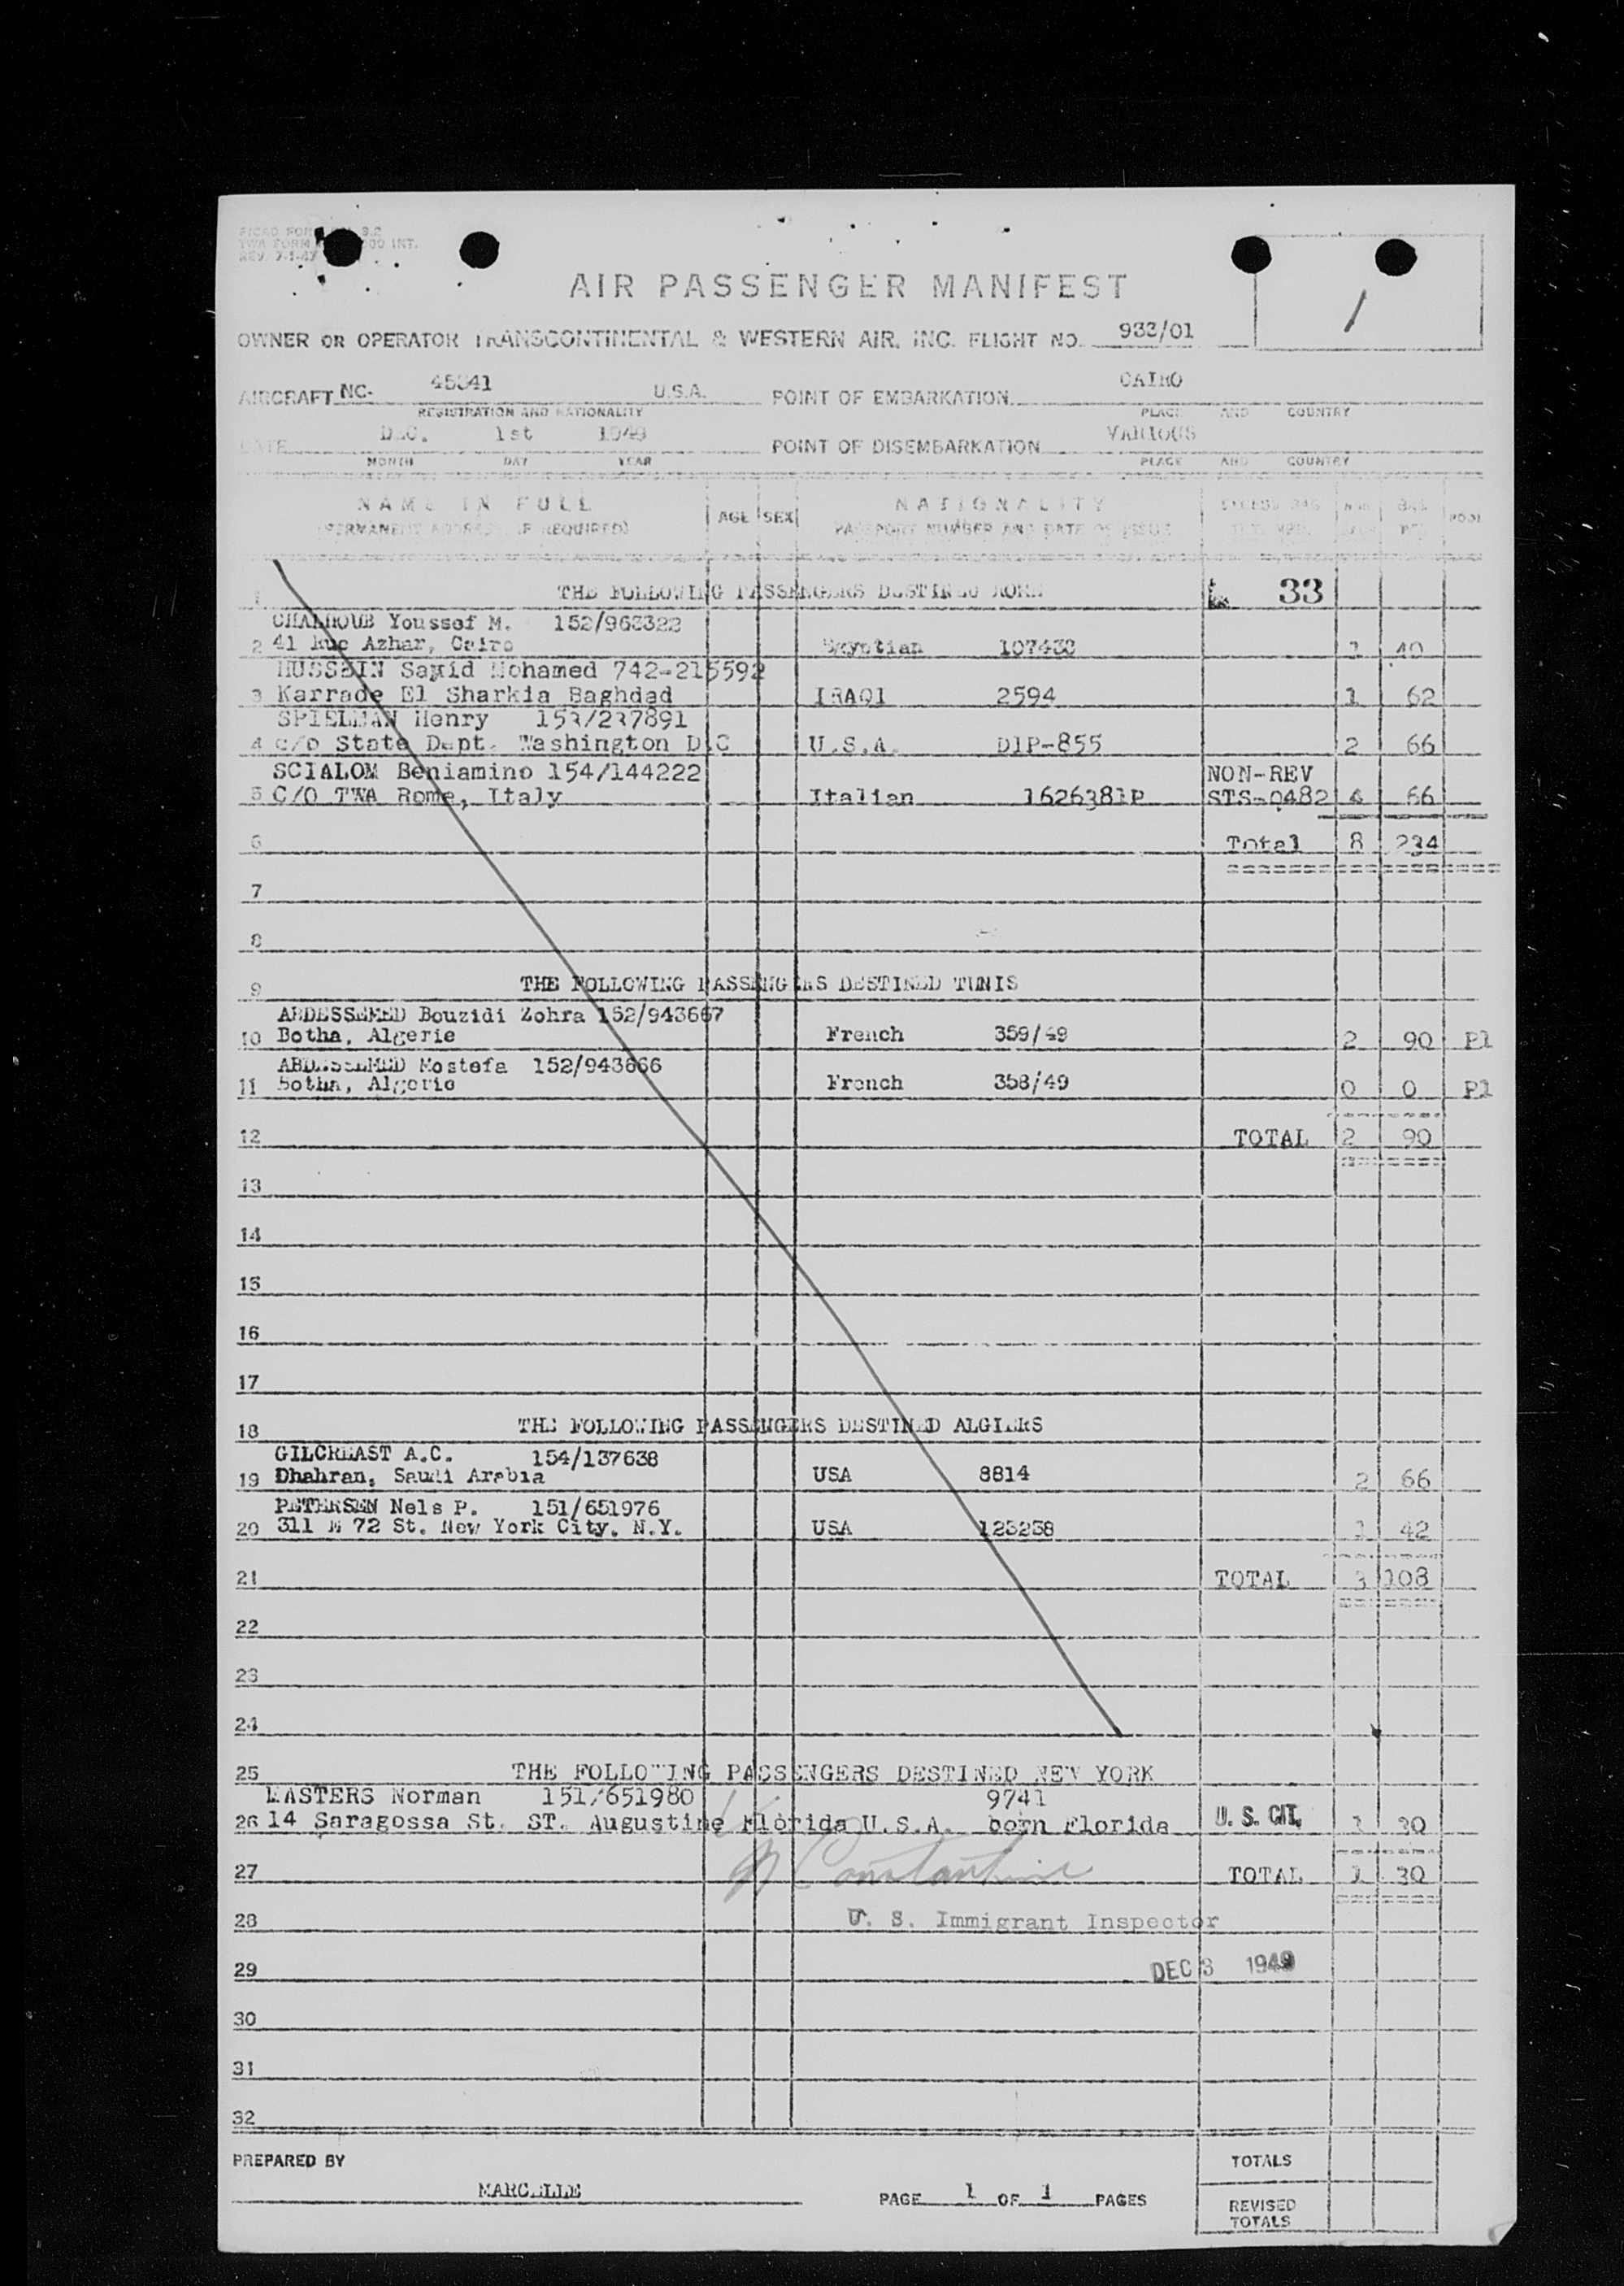 REV. 7-1-47
AIR PASSENGER MANIFEST
OWNER OR OPERATOR TRANSCONTINENTAL & WESTERN AIR, INC. FLIGHT NO. 933/01
/
AIRCRAFT NC- U.S.A. POINT OF EMBARKATION CAIRO
REGISTRATION AND NATIONALITY PLACE AND COUNTRY
DATE DEC. 1st 1949 POINT OF DISEMBARKATION VARIOUS
MONTH DAY YEAR PLACE AND COUNTRY
NAME IN FULL AGE SEX NATIONALITY EXCESS BAG
(PERMANENT ADDRESS IF REQUIRED) PASSPORT NUMBER AND DATE OF ISSUE
1 THE FOLLOWING PASSENGERS DESTINED ROME 33
CHALHOUB Youssef M. 152/963322
2 41 Rue Azhar, Cairo Egyptian 1 40
HUSSEIN Sayid Mohamed 742-215592
3 Karrade El Sharkia Baghdad IRAQI 2594 1 62
SPIELMAN Henry 153/237891
4 c/o State Dept. Washington D.C U.S.A. DIP-855 2 66
SCIALOM Beniamino 154/144222 NON-REV
5 C/O TWA Rome, Italy Italian 1626381P STS-0482 4 66
6 Total 8 234
7
8
9 THE FOLLOWING PASSENGERS DESTINED TUNIS
ABDESSEMED Bouzidi Zohra 152/943667
10 Botha, Algerie French 359/49 2 90 P1
ABDESSEMED Mostefa 152/943666
11 Botha, Algerie French 358/49 0 0 P1
12 TOTAL 2 90
13
14
15
16
17
18 THE FOLLOWING PASSENGERS DESTINED ALGIERS
GILCREAST A.C. 154/137638
19 Dhahran, Saudi Arabia USA 8814 2 66
PETERSEN Nels P. 151/651976
20 311 E 72 St. New York City. N.Y. USA 123238 1 42
21 TOTAL 3 108
22
23
24
25 THE FOLLOWING PASSENGERS DESTINED NEW YORK
MASTERS Norman 151/651980 9741
26 14 Saragossa St. ST. Augustine Florida U.S.A. born Florida U. S. CIT. 1 30
27 N Constantine TOTAL 1 30
28 U. S. Immigrant Inspector
29 DEC 3 1949
30
31
32
PREPARED BY TOTALS
MARCELLE PAGE 1 OF 1 PAGES
REVISED
TOTALS